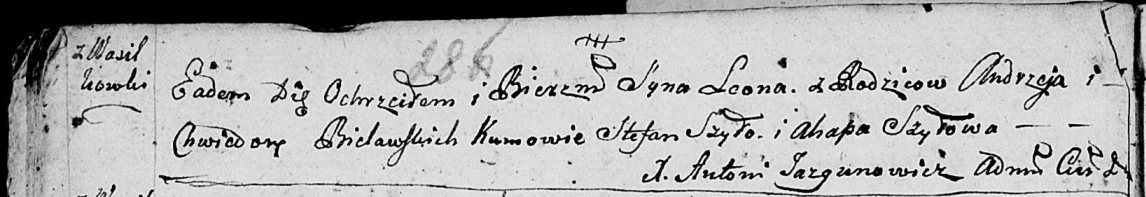 z Wasil
kowki
Eadem Die Ochrzciłem i Bierzm Syna Leona. z Rodzicow Andrzeja i
Chwiedory Bielawskich Kumowie Stefan Szyło. i Ahapa Szyłowa — —
X. Antoni Jazgunowicz Adm